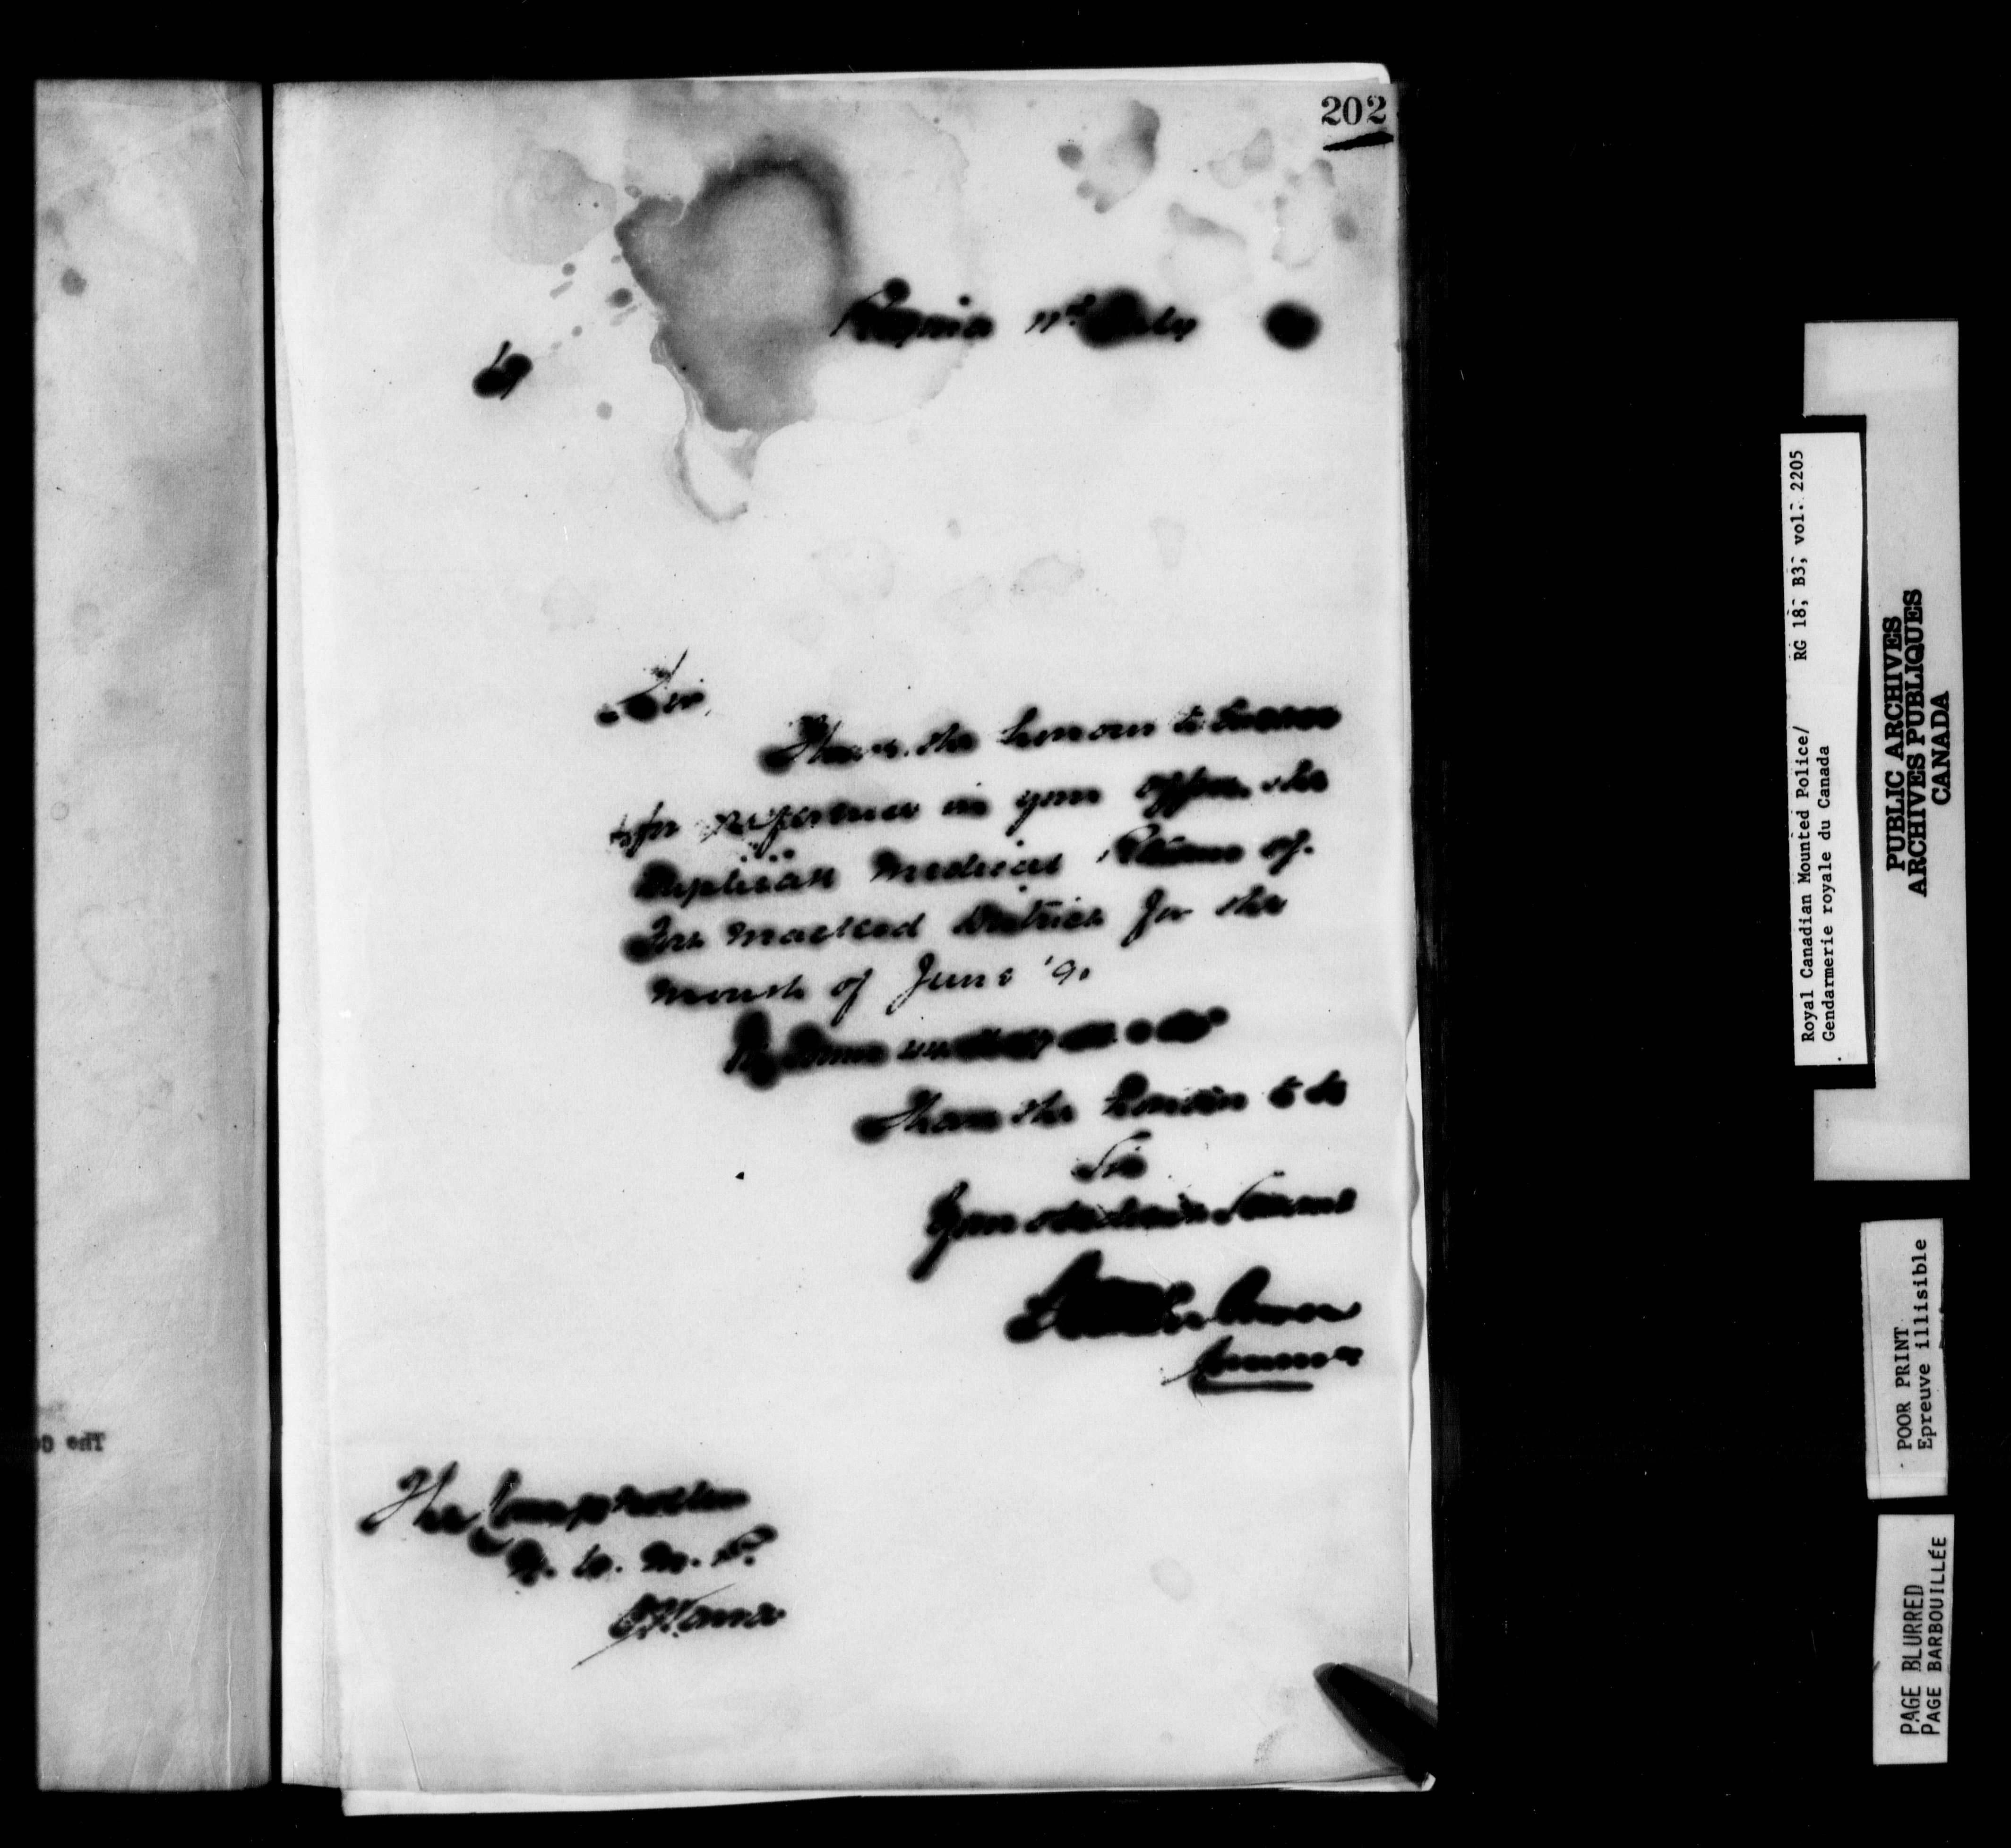 202
Regina 11th July 90
Sir,
I have the honour to
for reference in your Office, the
Duplicate Medical Returns of
the Macleod District for the
month of June '90
I have the honour to be
Sir
Your obedient Servant
The Comptroller
N. W. M. P.
Ottawa
The Co
Royal Canadian Mounted Police/ RG 18, B3, vol. 2205
Gendarmerie royale du Canada
PUBLIC ARCHIVES
ARCHIVES PUBLIQUES
CANADA
POOR PRINT
Epreuve illisible
PAGE BLURRED
PAGE BARBOUILLÉE